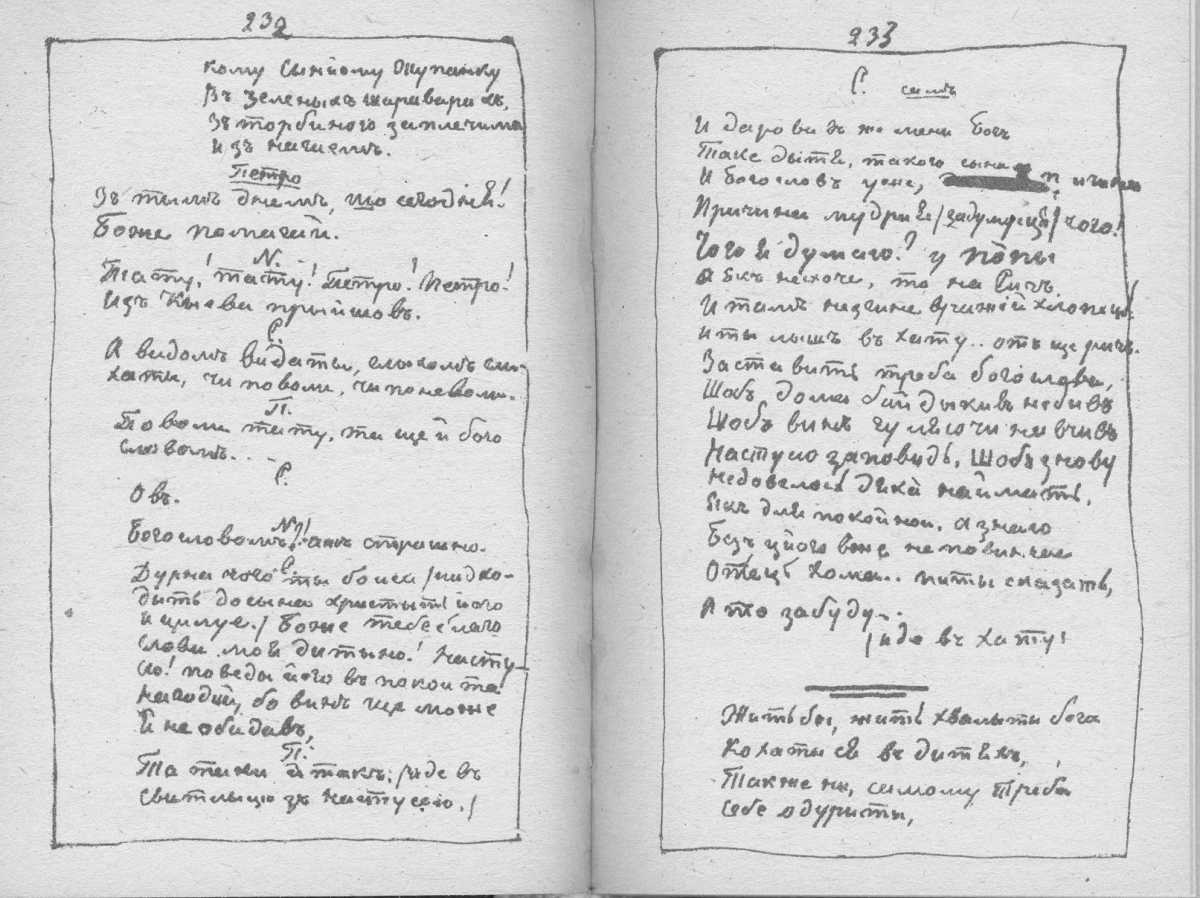 232
кому сынйому жупанку
Въ зеленыхъ шароварахъ,
Зъ торбиною за плечима
И зъ
Петро
Зъ тымъ днемъ, що сёгодня!
Боже помагай.
N.
Тату! тату! Петро! Петро!
Изъ Кыева прыйшовъ.
Р.
А видомъ видаты, слыхомъ слы-
хаты, чи по воли, чи по неволи.
П.
По воли тату, та ще й бого
словомъ...
Р.
Овъ.
N.
Богословомъ?! ажъ страшно.
Р.
Дурна чого ты боисся /пидхо-
дыть до сына хрыстыть його
и цилуе./ Боже тебе благо
слови моя дытыно! Насту-
сю! поведы його въ покои та
нагодуй, бо винъ ще може
й не обидавъ,
П.
Та таки й такъ. /иде въ
свитлыцю зъ Настусею./
233
Р. самъ
И даровавъ же мени Богъ
Таке дытя, такого сына
И богословъ уже,
Причина мудрія /задумується/ чого!
Чого я думаю? у попы
А якъ не схоче, то на Сичъ
И тамъ не згине вражій хлопець.
ити лышъ въ хату.. отъ ще ричъ.
Заставить треба богослова,
Шобъ дома байдыкивъ не бивъ
Шобъ винъ гуляючи навчивъ
Настусю заповидь, Шобъ знову
Недовелось дяка наймать,
Якъ для покойнои, а знаю
Безъ цього вже неповинчае
Отець Хома.. питы сказать,
А то забуду..
/иде въ хату/
Жить бы, жить хвалыты бога
Кохатыся въ дитяхъ,
Такъ же ни, самому треба
Себе одурыты,